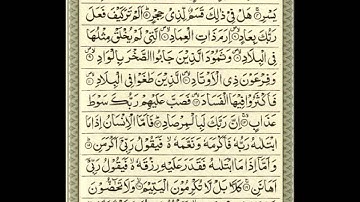 يَسْرِ ۞ هَلْ فِيْ ذٰلِكَ قَسَمٌ لِّذِيْ حِجْرٍ ۞ اَلَمْ تَرَ كَيْفَ فَعَلَ
رَبُّكَ بِعَادٍ ۞ اِرَمَ ذَاتِ الْعِمَادِ ۞ الَّتِيْ لَمْ يُخْلَقْ مِثْلُهَا
فِي الْبِلَادِ ۞ وَثَمُوْدَ الَّذِيْنَ جَابُوا الصَّخْرَ بِالْوَادِ ۞
وَفِرْعَوْنَ ذِي الْاَوْتَادِ ۞ الَّذِيْنَ طَغَوْا فِي الْبِلَادِ ۞
فَاَكْثَرُوْا فِيْهَا الْفَسَادَ ۞ فَصَبَّ عَلَيْهِمْ رَبُّكَ سَوْطَ
عَذَابٍ ۞ اِنَّ رَبَّكَ لَبِالْمِرْصَادِ ۞ فَاَمَّا الْاِنْسَانُ اِذَا مَا
ابْتَلٰىهُ رَبُّهٗ فَاَكْرَمَهٗ وَنَعَّمَهٗ ۙ فَيَقُوْلُ رَبِّيْۤ اَكْرَمَنِ ۞
وَاَمَّاۤ اِذَا مَا ابْتَلٰىهُ فَقَدَرَ عَلَيْهِ رِزْقَهٗ ۙ فَيَقُوْلُ رَبِّيْۤ
اَهَانَنِ ۞ كَلَّا بَلْ لَّا تُكْرِمُوْنَ الْيَتِيْمَ ۞ وَلَا تَحٰٓضُّوْنَ